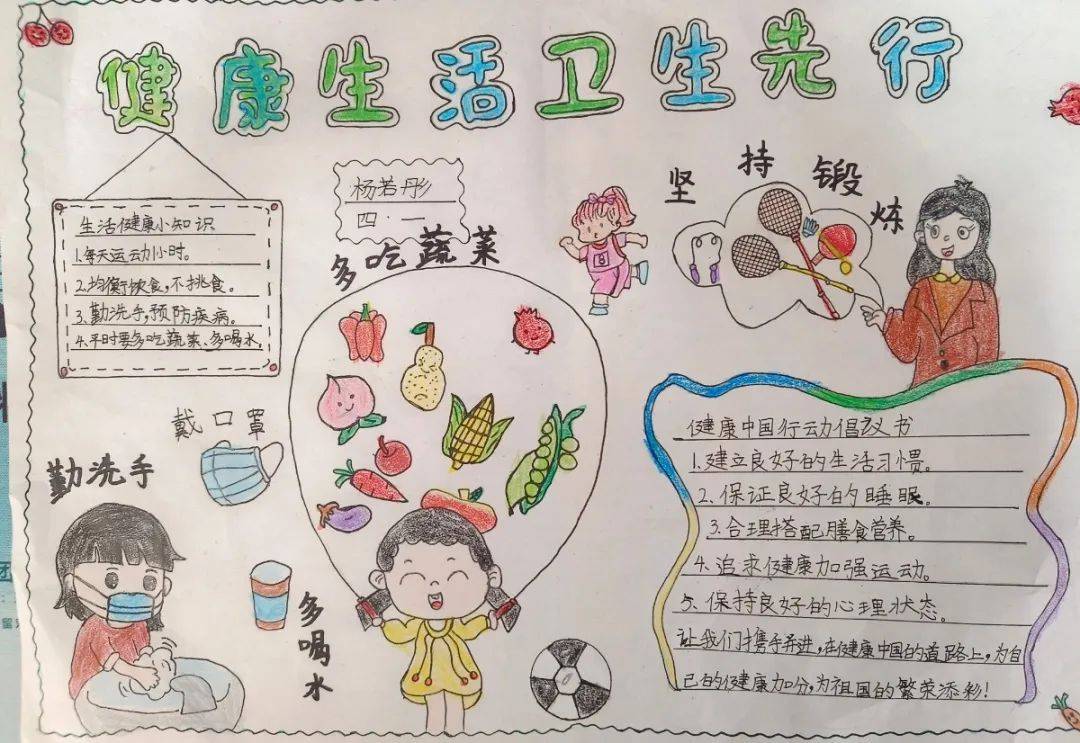 健康生活卫生先行
生活健康小知识
1.每天运动1小时。
2.均衡饮食,不挑食。
3.勤洗手,预防疾病。
4.平时要多吃蔬菜、多喝水。
杨若彤
四·一
多吃蔬菜
坚持锻炼
戴口罩
勤洗手
多喝水
8
健康中国行动倡议书
1.建立良好的生活习惯。
2.保证良好的睡眠。
3.合理搭配膳食营养。
4.追求健康加强运动。
5.保持良好的心理状态。
让我们携手并进,在健康中国的道路上,为自
己的健康加分,为祖国的繁荣添彩!